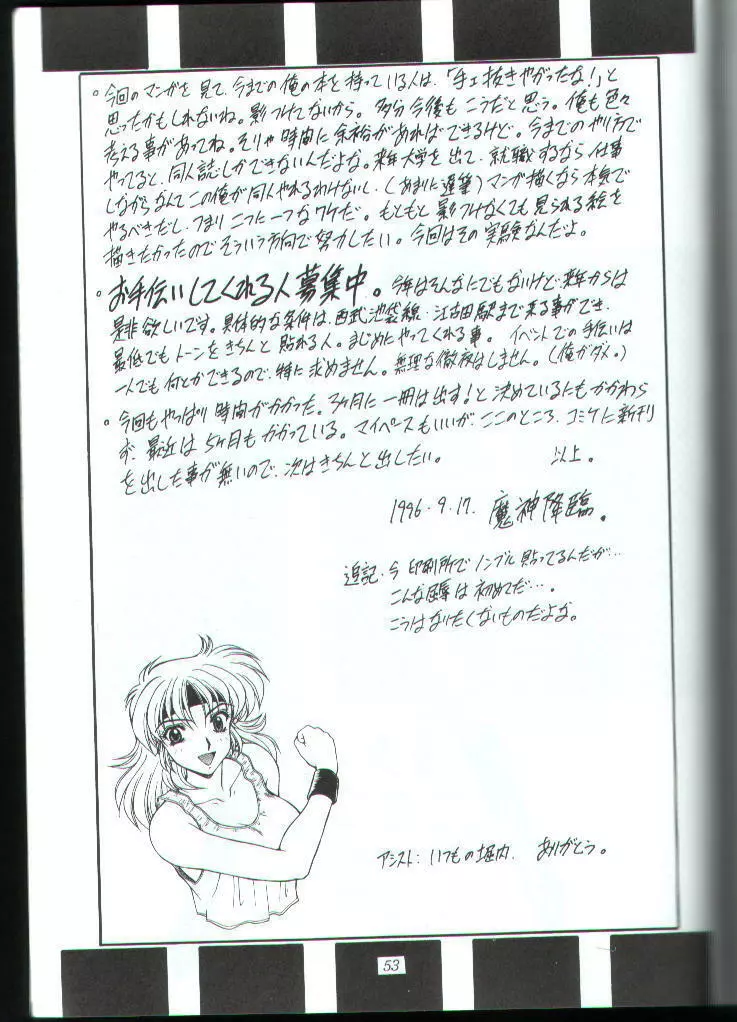 。今回のマンガを見て、今までの俺の本を持っている人は、「手ェ抜きやがったな!」と
思ったかもしれないね。影つけてないから。多分今後もこうだと思う。俺も色々
考える事があってね。そりゃ時間に余裕があればできるけど。今までのやり方で
やってると、同人誌しかできないんだよな。来年大学を出て、就職するなら仕事
しながらなんてこの俺が同人やれるわけないし、(あまりに遅筆)マンガ描くなら本気で
やるべきだし、つまり二つに一つなワケだ。もともと影つけなくても見られる絵を
描きたかったのでそういう方向で努力したい。今回はその実験なんだよ。
。お手伝いしてくれる人募集中。今年はそんなにでもないけど、来年からは
是非欲しいです。具体的な条件は、西武池袋線・江古田駅まで来る事ができ、
最低でもトーンをきちんと貼れる人。まじめにやってくれる事。イベントでの手伝いは
一人でも何とかできるので、特に求めません。無理な徹夜はしません。(俺がダメ。)
。今回もやっぱり時間がかかった。3ヶ月に一冊は出す!と決めているにもかかわら
ず、最近は5ヶ月もかかっている。マイペースもいいが、ここのところ、コミケに新刊
を出した事が無いので、次はきちんと出したい。 以上。
1996.9.17. 魔神降臨。
追記・今印刷所でノンブル貼ってるんだが…
こんな屈辱は初めてだ…。
こうはなりたくないものだよな。
アシスト:いつもの堀内、ありがとう。
53